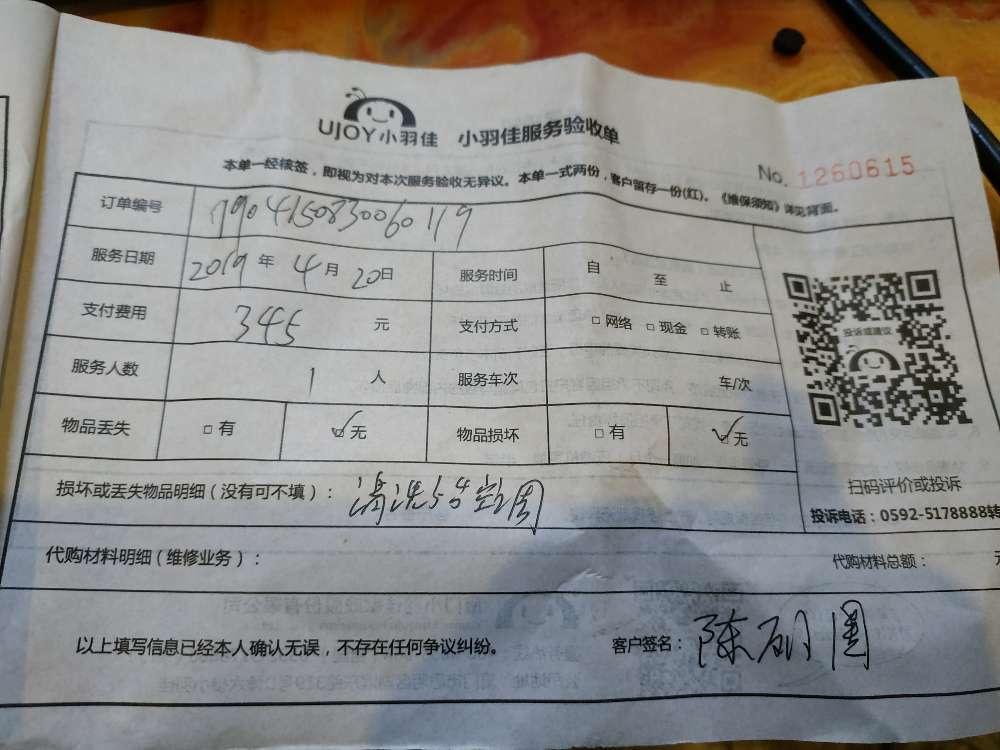 UJOY小羽佳 小羽佳服务验收单
No. 1260615
本单一经核签，即视为对本次服务验收无异议。本单一式两份，客户留存一份(红)。《维保须知》详见背面。
订单编号 1904150830060119
服务日期 2019年 4月 20日 服务时间 自 至 止
支付费用 345 元 支付方式 □网络 □现金 □转账
投诉或建议
服务人数 1 人 服务车次 车/次
物品丢失 □有 ☑无 物品损坏 □有 ☑无
扫码评价或投诉
损坏或丢失物品明细（没有可不填）： 清洗5台空调
投诉电话：0592-5178888转
代购材料明细（维修业务）： 代购材料总额： 元
以上填写信息已经本人确认无误，不存在任何争议纠纷。 客户签名： 陈